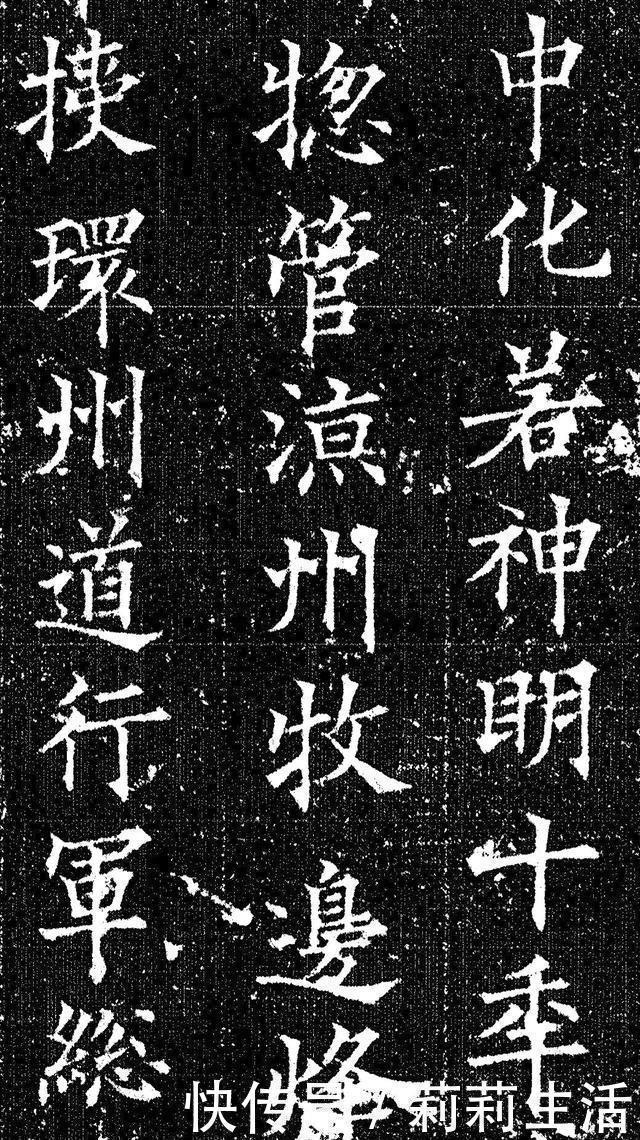 中化若神明十年
揔管涼州牧邊烽
挾環州道行軍総
快传号 / 莉莉生活